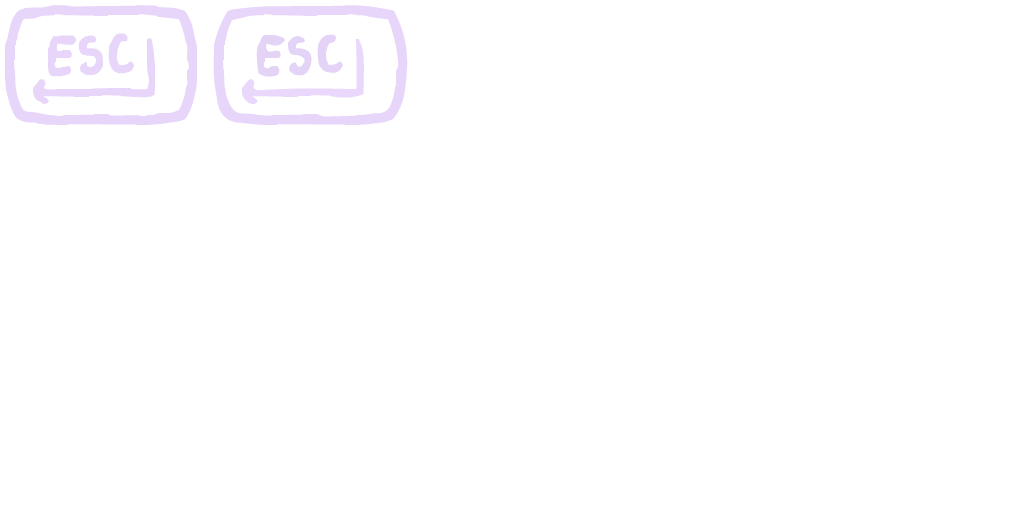 ESC ESC